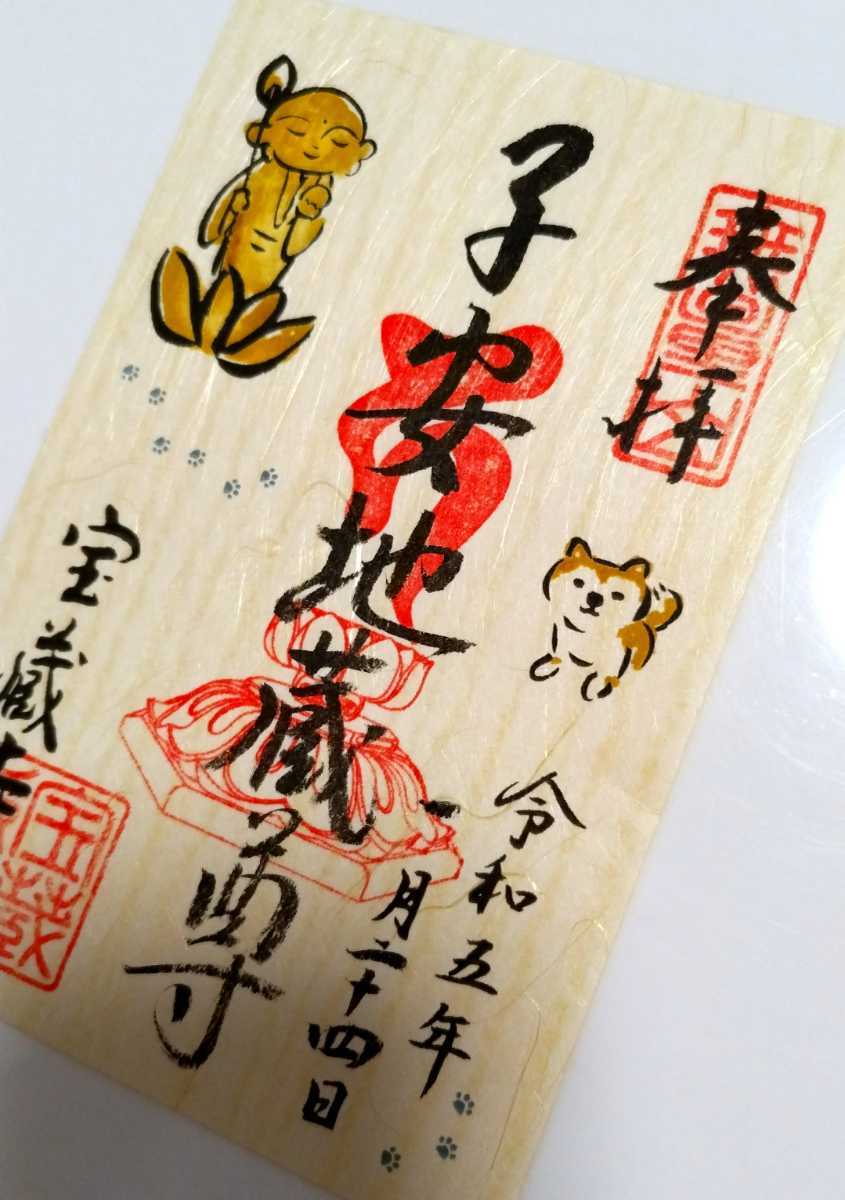 奉拝
子安地蔵尊
令和五年
一月二十四日
宝蔵寺
宝蔵